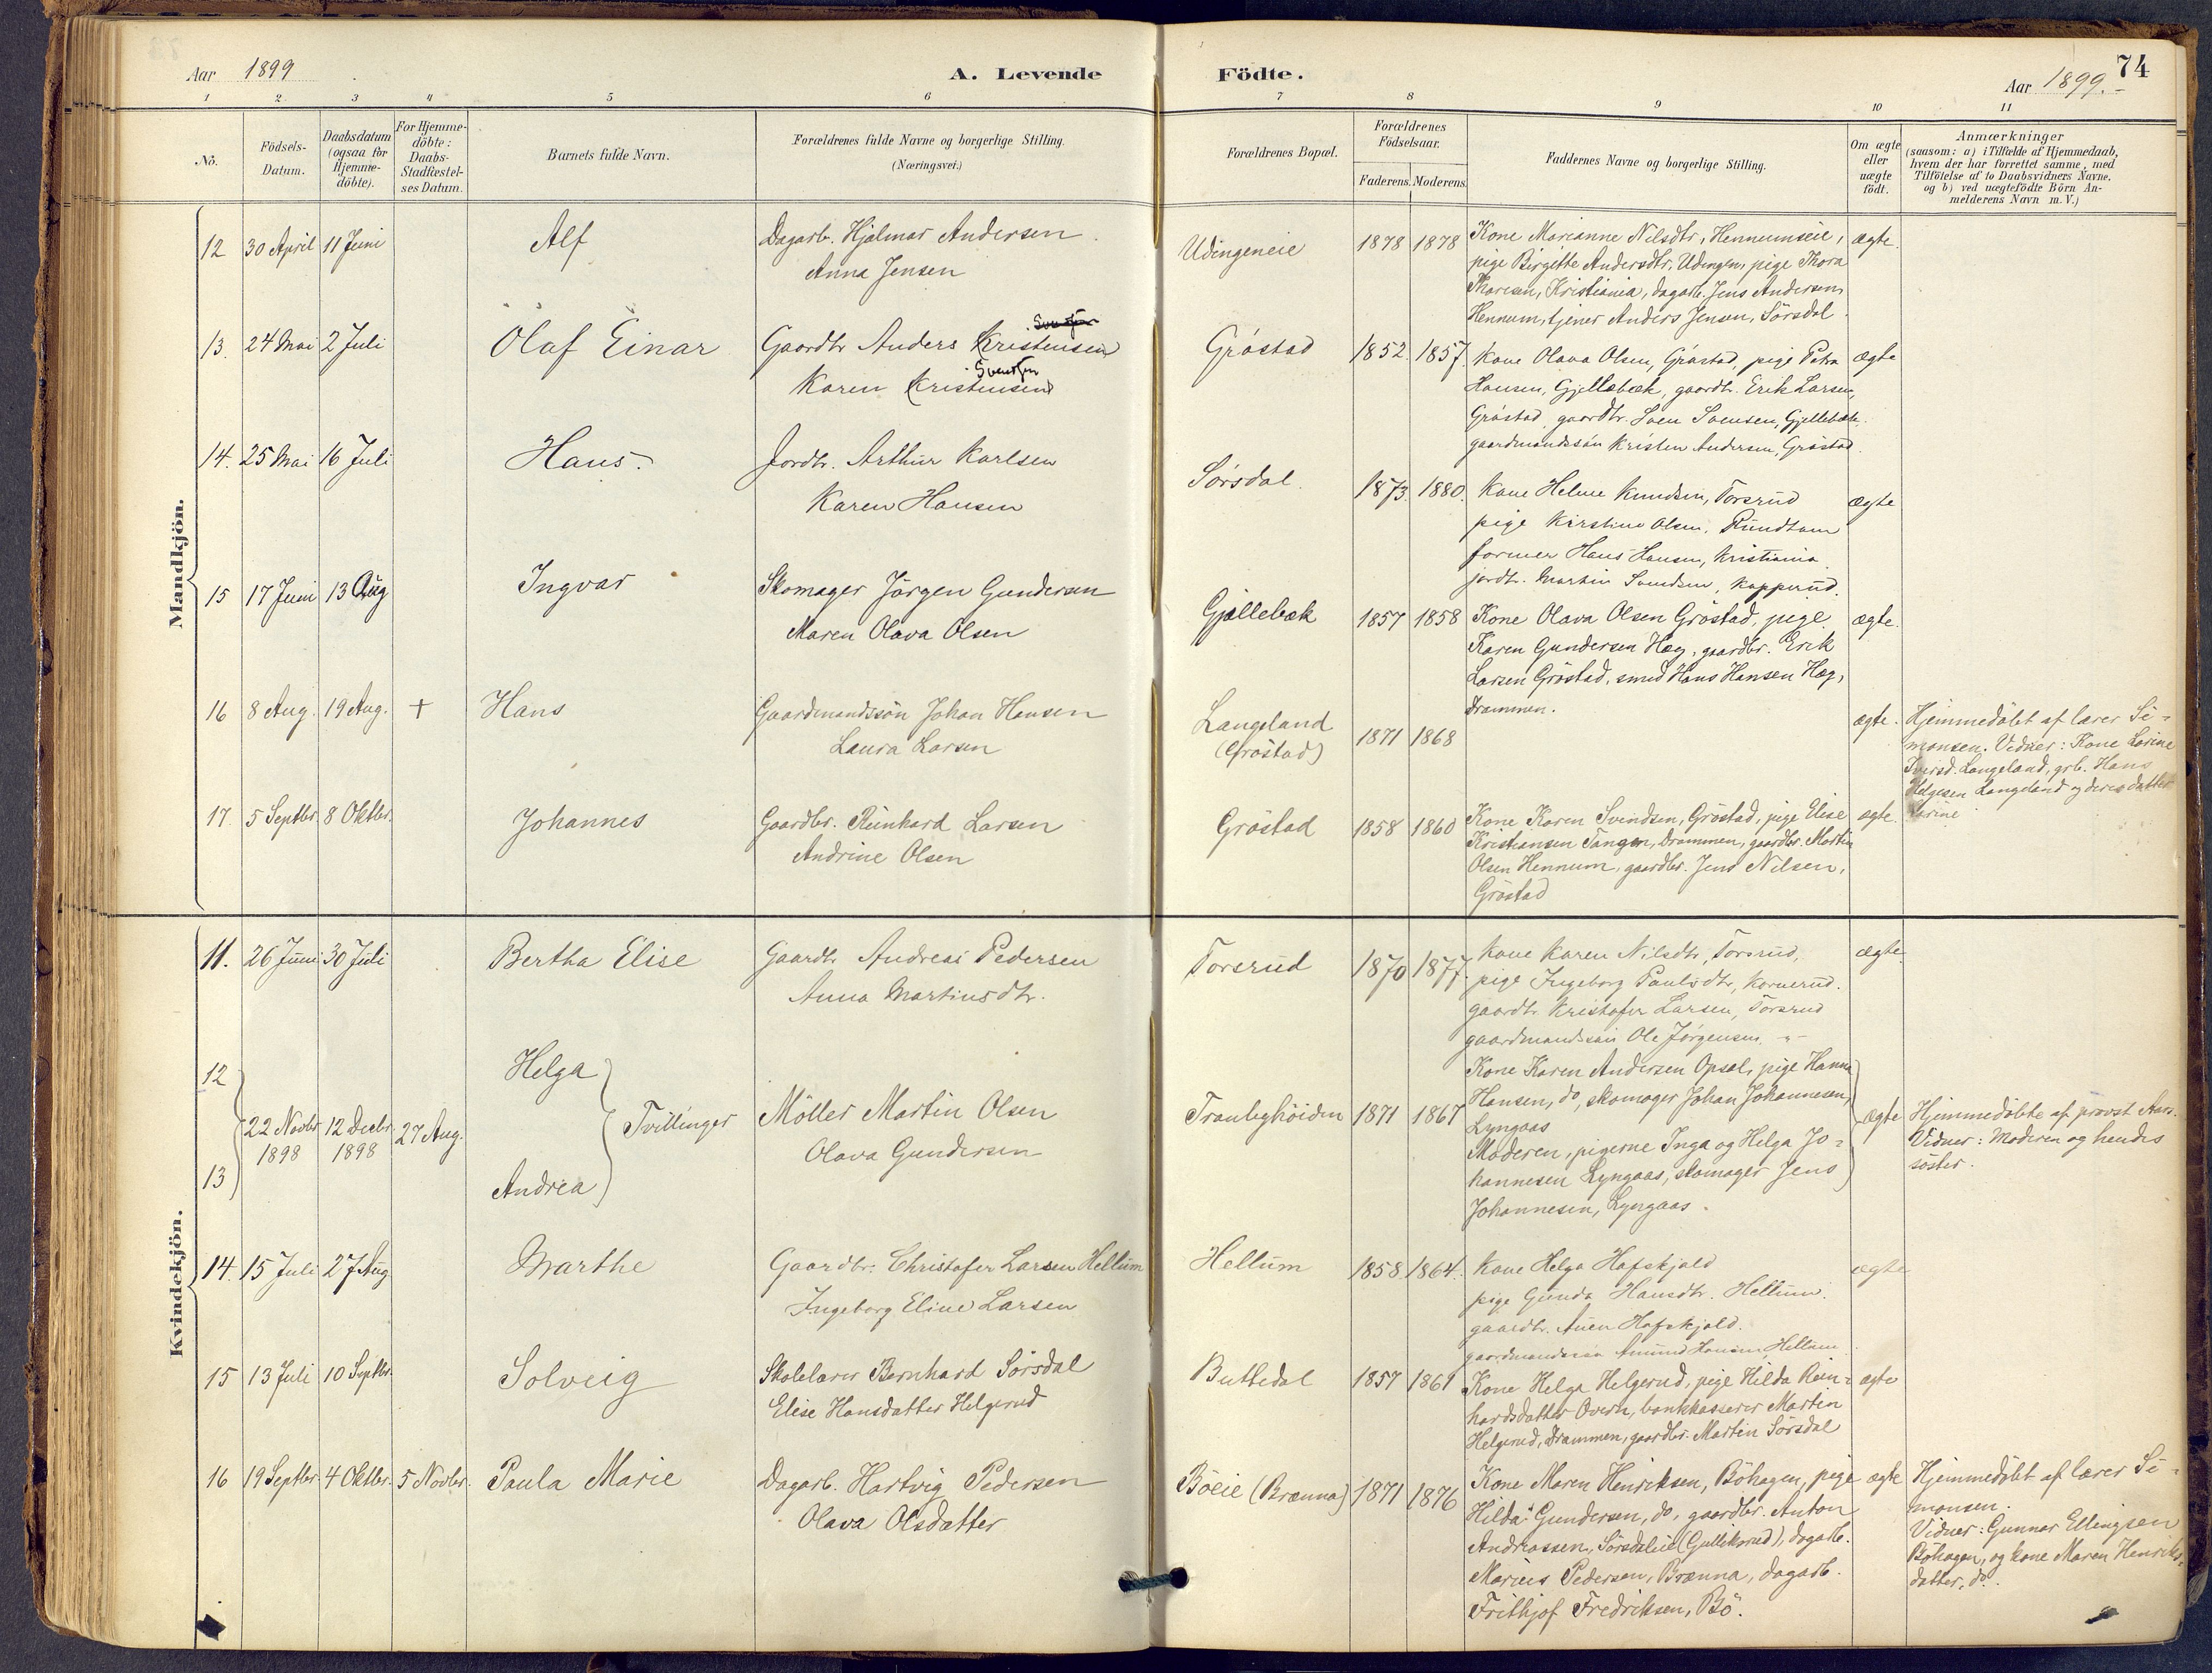 Aar 1899
A. Levende Födte.
Aar 1899.
74
1 2 3 4 5 6 7 8 9 10 11
No.
Födsels-Datum.
Daabsdatum (ogsaa for Hjemme-döbte).
For Hjemme-döbte: Daabs-Stadfæstel-ses Datum.
Barnets fulde Navn.
Forældrenes fulde Navne og borgerlige Stilling. (Næringsvei.)
Forældrenes Bopæl.
Forældrenes Födselsaar.
Faderens. Moderens.
Faddernes Navne og borgerlige Stilling.
Om ægte eller uægte födt.
Anmærkninger
(saasom: a) i Tilfælde af Hjemmedaab,
hvem der har forrettet samme, med
Tilföielse af to Daabsvidners Navne.
og b) ved uægtefödte Börn An-
melderens Navn m.V.)
Mandkjön.
12 30 April 11 Juni Alf Dagarb. Hjalmar Andersen
Anna Jensen
Udingeneie 1878 1878 Kone Marianne Nilsdtr, Hennumseie, ægte.
pige Birgitte Andersdtr, Udingen, pige Thora
Thoresen, Kristiania, dagarb. Jens Andersen
Hennum, tjener Anders Jensen, Sörsdal.
13. 24 Mai 2 Juli Olaf Einar Gaardbr Anders Kristensen
Karen (Kristensen) Svendsen
Gröstad 1852. 1857. Kone Olava Olsen, Gröstad, pige Petra ægte
Hansen, Gjellebæk, gaardbr. Erik Larsen,
Gröstad, gaardbr. Sven Svensen, Gjellebæk.
gaardmandssön Kristen Andersen, Gröstad.
14. 25 Mai 16 Juli Hans. Jordbr. Arthur Karlsen
Karen Hansen
Sörsdal. 1873. 1880. Kone Helene Knudsen, Torsrud ægte
pige Kirstine Olsen,
former Hans Hansen, Kristiania.
jordbr. Martin Svendsen, Kopperud.
15 17 Juni 13 Aug Ingvar Skomager Jörgen Gundersen
Maren Olava Olsen
Gjellebæk 1857 1858 Kone Olava Olsen Gröstad, pige ægte.
Karen Gundersen Hæg, gaardbr. Erik
Larsen Gröstad, smed Hans Hansen Hæg,
Drammen.
16 8 Aug. 19 Aug. + Hans Gaardmandssön Johan Hansen
Laura Larsen
Langeland
(Gröstad)
1871 1868 ægte. Hjemmedöbt af lærer Si-
monsen. Vidner: Kone Larine
Iversd. Langeland, grb. Hans
Helgesen Langeland og deres datter
Larine
17. 5 Septbr. 8 Oktbr. Johannes Gaardbr. Reinhard Larsen
Andrine Olsen
Gröstad 1858 1860 Kone Karen Svendsen, Gröstad, pige Elise ægte.
Kristiansen Tangen, Drammen, gaardbr. Martin
Olsen Hennum, gaardbr. Jens Nilsen,
Gröstad
Kvindekjön.
11. 26 Juni 30 Juli Bertha Elise Gaardbr Andreas Pedersen
Anna Martinsdtr.
Torsrud 1870 1877. Kone Karen Nilsdtr, Torsrud, ægte
pige Ingeborg Paulsdtr, Kornerud.
gaardbr. Kristofer Larsen, Torsrud
gaardmandssön Ole Jörgensen. -"-
12 Helga
13 Andrea
22 Novbr 1898 12 Decbr. 1898 27 Aug. Tvillinger Möller Martin Olsen
Olava Gundersen
Tranbyhöiden 1871 1867 Kone Karen Andersen Opsal, pige Hanna
Hansen, do, skomager Johan Johannesen,
Lyngaas
Moderen, pigerne Inga og Helga Jo-
hannesen Lyngaas, skomager Jens
Johannesen, Lyngaas.
ægte Hjemmedöbte af provst Aars.
Vidner: Moderen og hendes
söster.
14. 15 Juli 27 Aug Marthe Gaardbr. Christofer Larsen Hellum
Ingeborg Eline Larsen
Hellum 1858. 1864. Kone Helga Hafskjold ægte
pige Gunda Hansdtr. Hellum.
gaardbr. Hafskjold.
gaardmandssön Amund Hansen, Hellum.
15 13 Juli 10 Septbr. Solveig Skolelærer Bernhard Sörsdal
Elise Hansdatter Helgerud
Buttedal 1857 1861 Kone Helga Helgerud, pige Hilda Rein- ægte
hardsdatter Overn, bankkasserer Martin
Helgerud, Drammen, gaardbr. Martin Sörsdal
16 19 Septbr. 4 Oktbr. 5 Novbr. Paula Marie Dagarb. Hartvig Pedersen
Olava Olsdatter
Böeie (Brænna) 1871 1876 Kone Maren Henriksen, Böhagen, pige ægte
Hilda Gundersen, do, gaardbr. Anton
Andreassen, Sörsdaleie (Gulliksrud), dagarb.
Marius Pedersen, Brænna, dagarb.
Frithjof Fredriksen, Bö.
Hjemmedöbt af lærer Si-
monsen.
Vidner: Gunnar Ellingsen
Böhagen, og kone Maren Henriks-
datter, do.